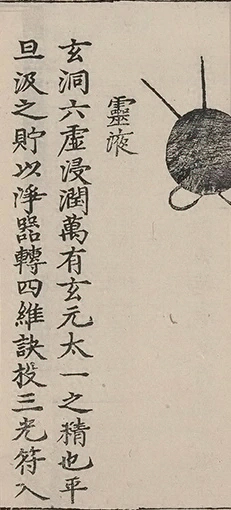 靈液
玄洞六虛浸潤萬有玄元太一之精也平
旦汲之貯以淨器轉四維訣投三光符入